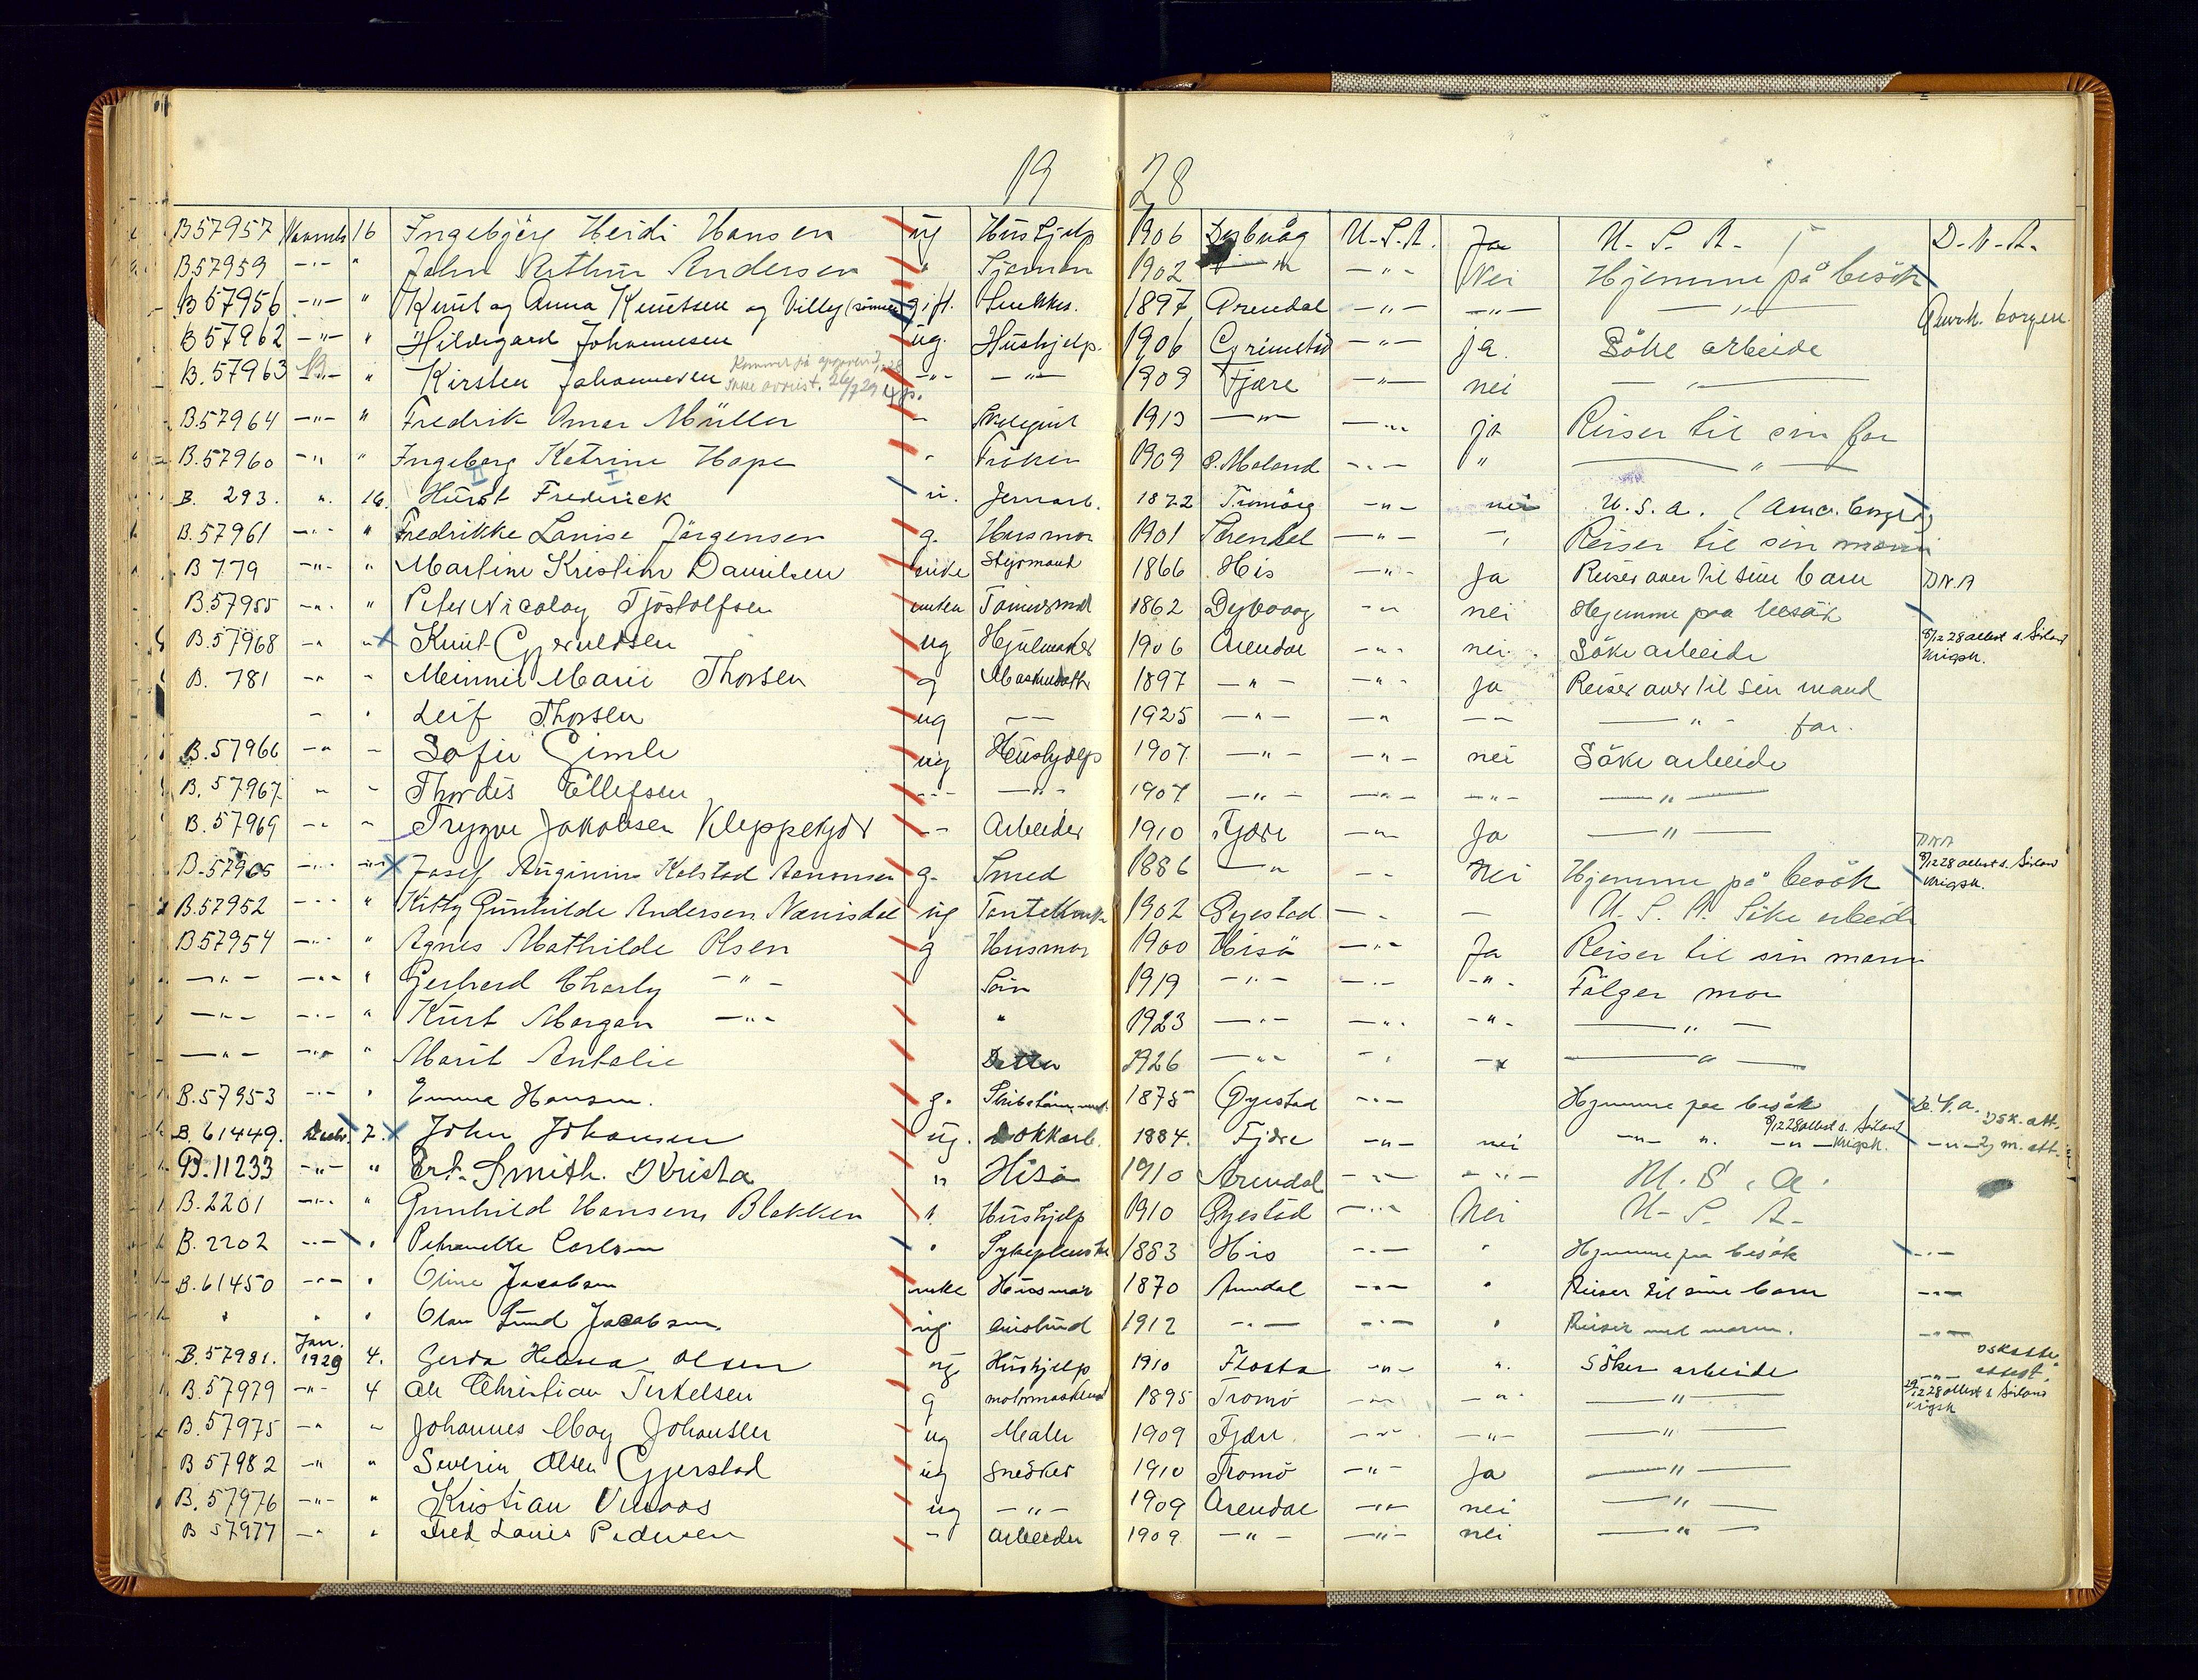 19 28
B57957 Novmb 16 Ingebjörg Heidi Hansen ug Hushjelp 1906 Dybvåg U.S.A. Ja U.S.A. D.N.A.
B57959 -"- " John Arthur Andersen " Sjøman 1902 -"- -"- Nei Hjemme på besök
B57956 -"- " Knut og Anna Knutsen og Villy (sønnen) gift. Snekker. 1897 Arendal -"- -"- -"- Amerik. borger.
B57962 -"- " Hildegard Johannesen ug. Hushjelp. 1906 Grimstad -"- ja. Söke arbeide
B.57963 -"- " Kirsten Johannesen -"- -"- 1909 Fjære -"- nei -"-
B.57964 -"- " Fredrik Omar Müller - Skolegut 1913 -"- -"- ja Reiser til sin far
B.57960 -"- " Ingeborg Katrine Hope " Frøken 1909 Ø.Moland -"- " -"-
B. 293. ". 16. Hurst Frederick u. Jernarb. 1872 Tromöy -"- nei U.S.A. (Amer. borger)
B.57961 -"- " Fredrikke Lovise Jörgensen g. Husmor 1901 Arendal -"- -"- Reiser til sin mann
B 779 -"- " Martine Kristine Danielsen enke Styrmand 1866 His -"- Ja Reiser over til sine barn DNA
B.57955 -"- " Peter Nicolay Tjöstolfsen enkem Tømmermd 1862 Dybvaag -"- nei Hjemme paa besök
B.57968 -"- -"- Knut Gjeruldsen ug Hjulmaker 1906 Arendal -"- nei Söke arbeide 8/12 28 attest s. Sörland krigsk.
B. 781 -"- - Meinnie Marie Thorsen g 1897 -"- -"- ja Reiser over til sin mand
- " Leif Thorsen ug -- 1925 -"- -"- -- -"- far.
B.57966 -"- - Sofie Gimle ug Hushjelp 1907 -"- -"- nei Söke arbeide
B.57967 - - Thordis Ellefsen --- -"- 1907 -"- -"- -"- -"-
B.57969 -- - Trygve Jakobsen Kleppekjær -- Arbeider 1910 Fjære -"- Ja -"-
B.57965 -"- -"- Josef Anginius Kolstad Aanonsen g. Smed 1886 -"- -- Nei Hjemme på besök DNA 8/12 28 attest s. Sörland krigsk.
B.57952 -"- " Kitty Gunhilde Andersen Nævisdal ug 1902 Øyestad -"- - U.S.A. Söke arbeide
B57954 -"- " Agnes Mathilde Olsen g Husmor 1900 Hisö -"- Ja Reiser til sin mann
-"- -"- " Gerhard Charly -"- Sön 1919 -"- -"- -"- Fölger mor
-"- -"- " Kurt Morgan -"- " 1923 -"- -"- -"- -"-
-"- -"- " Marit Antalie Datter 1926 -"- -"- -"- -"-
B.57953 -"- " Emma Hansen. g. 1875 Øyestad -"- Hjemme paa besök D.N.A. Dsk. att.
B.61449. Decbr. 7. John Johansen ug. Dokkarb. 1884. Fjære -"- nei -"- ". 8/12 28 attest s. Sörland -"- krigsk. -"- Lj m. att.
B.11233 -"- " Ert. Smith. Krista " Hisö 1910 Arendal -"- -"- U.S.A.
B.2201 -"- " Gunhild Hansen Blakken " Hushjelp 1910 Øyestad -"- Nei U.S.A.
B.2202 -"- " Petronelle Carlsen " Sykepleierske 1883 His -"- " Hjemme paa besök -"-
B.61450 -"- " Oline Jacobsen enke Husmor 1870 Arendal -"- " Reiser til sine barn -"-
" " " Olav Lund Jacobsen. ug. 1912 -"- -"- " Reiser med moren. -"-
B.57981. Jan. 1929 4. Gerda Helena Olsen ug Hushjelp 1910 Flosta -"- ". Söker arbeide Dsk atte
B.57979 -"- 4 Ole Christian Terkelsen g 1895 Tromö -"- -"- -"- -"- attest. 29/12 28 attest s. Sörland krigsk
B.57975 -"- - Johannes May Johansen ug Maler 1909 Fjære -"- -"- -"-
B 57982 -"- " Severin Olsen Gjerstad ug Snedker 1910 Tromö -"- Ja -"-
B.57976 -"- " Kristian Vindaas ug -"- 1909 Arendal -"- nei -"-
B 57977 -"- " Fred Louis Pedersen - Arbeider 1909 -"- -"- nei -"-